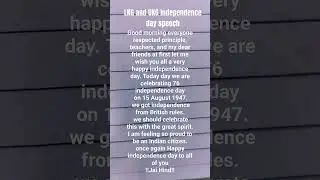 LKG and UKG independence
day speech
Good morning everyone
respected principle,
teachers, and my dear
friends at first let me
wish you all a very
happy independence
day. Today day we are
celebrating 76
independence day
on 15 August 1947.
we got independence
from British rules.
we should celebrate
this with the great spirit.
I am feeling so proud to
be an indian citizen.
once again Happy
independence day to all
of you
!!Jai Hind!!